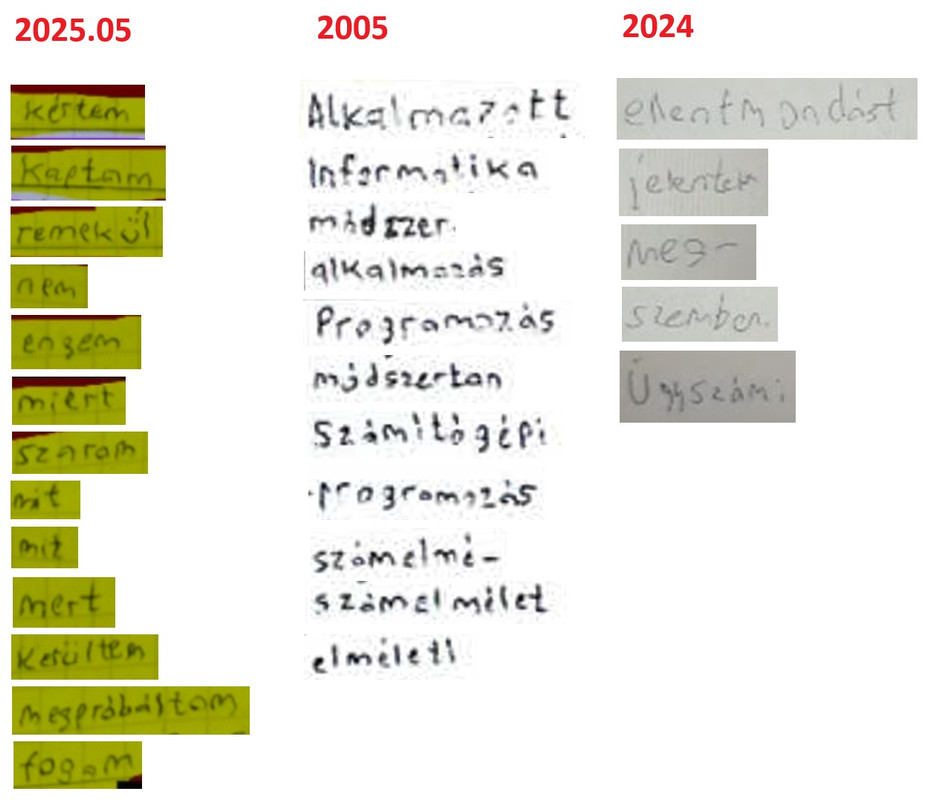 2025.05
kértem
Kaptam
remekül
nem
engem
miért
szaram
mit
mit
mert
Kerültem
megpróbáltam
fogam
2005
Alkalmazott
Informatika
módszer
alkalmazás
Programozás
módszertan
Számítógépi
programozás
számelmé-
számelmélet
elméleti
2024
ellentmondást
jelentem
meg-
szemben.
Ügyszám: